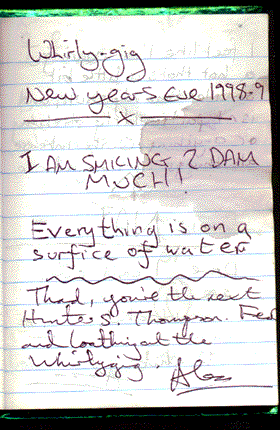 Whirly-gig
New years Eve 1998-9
x
I AM SMILING 2 DAM
MUCH!
Everything is on a
surfice of water
Thard, you're the next
Hunter S. Thompson. Fear
and Loathing at the
Whirlygig. Alex